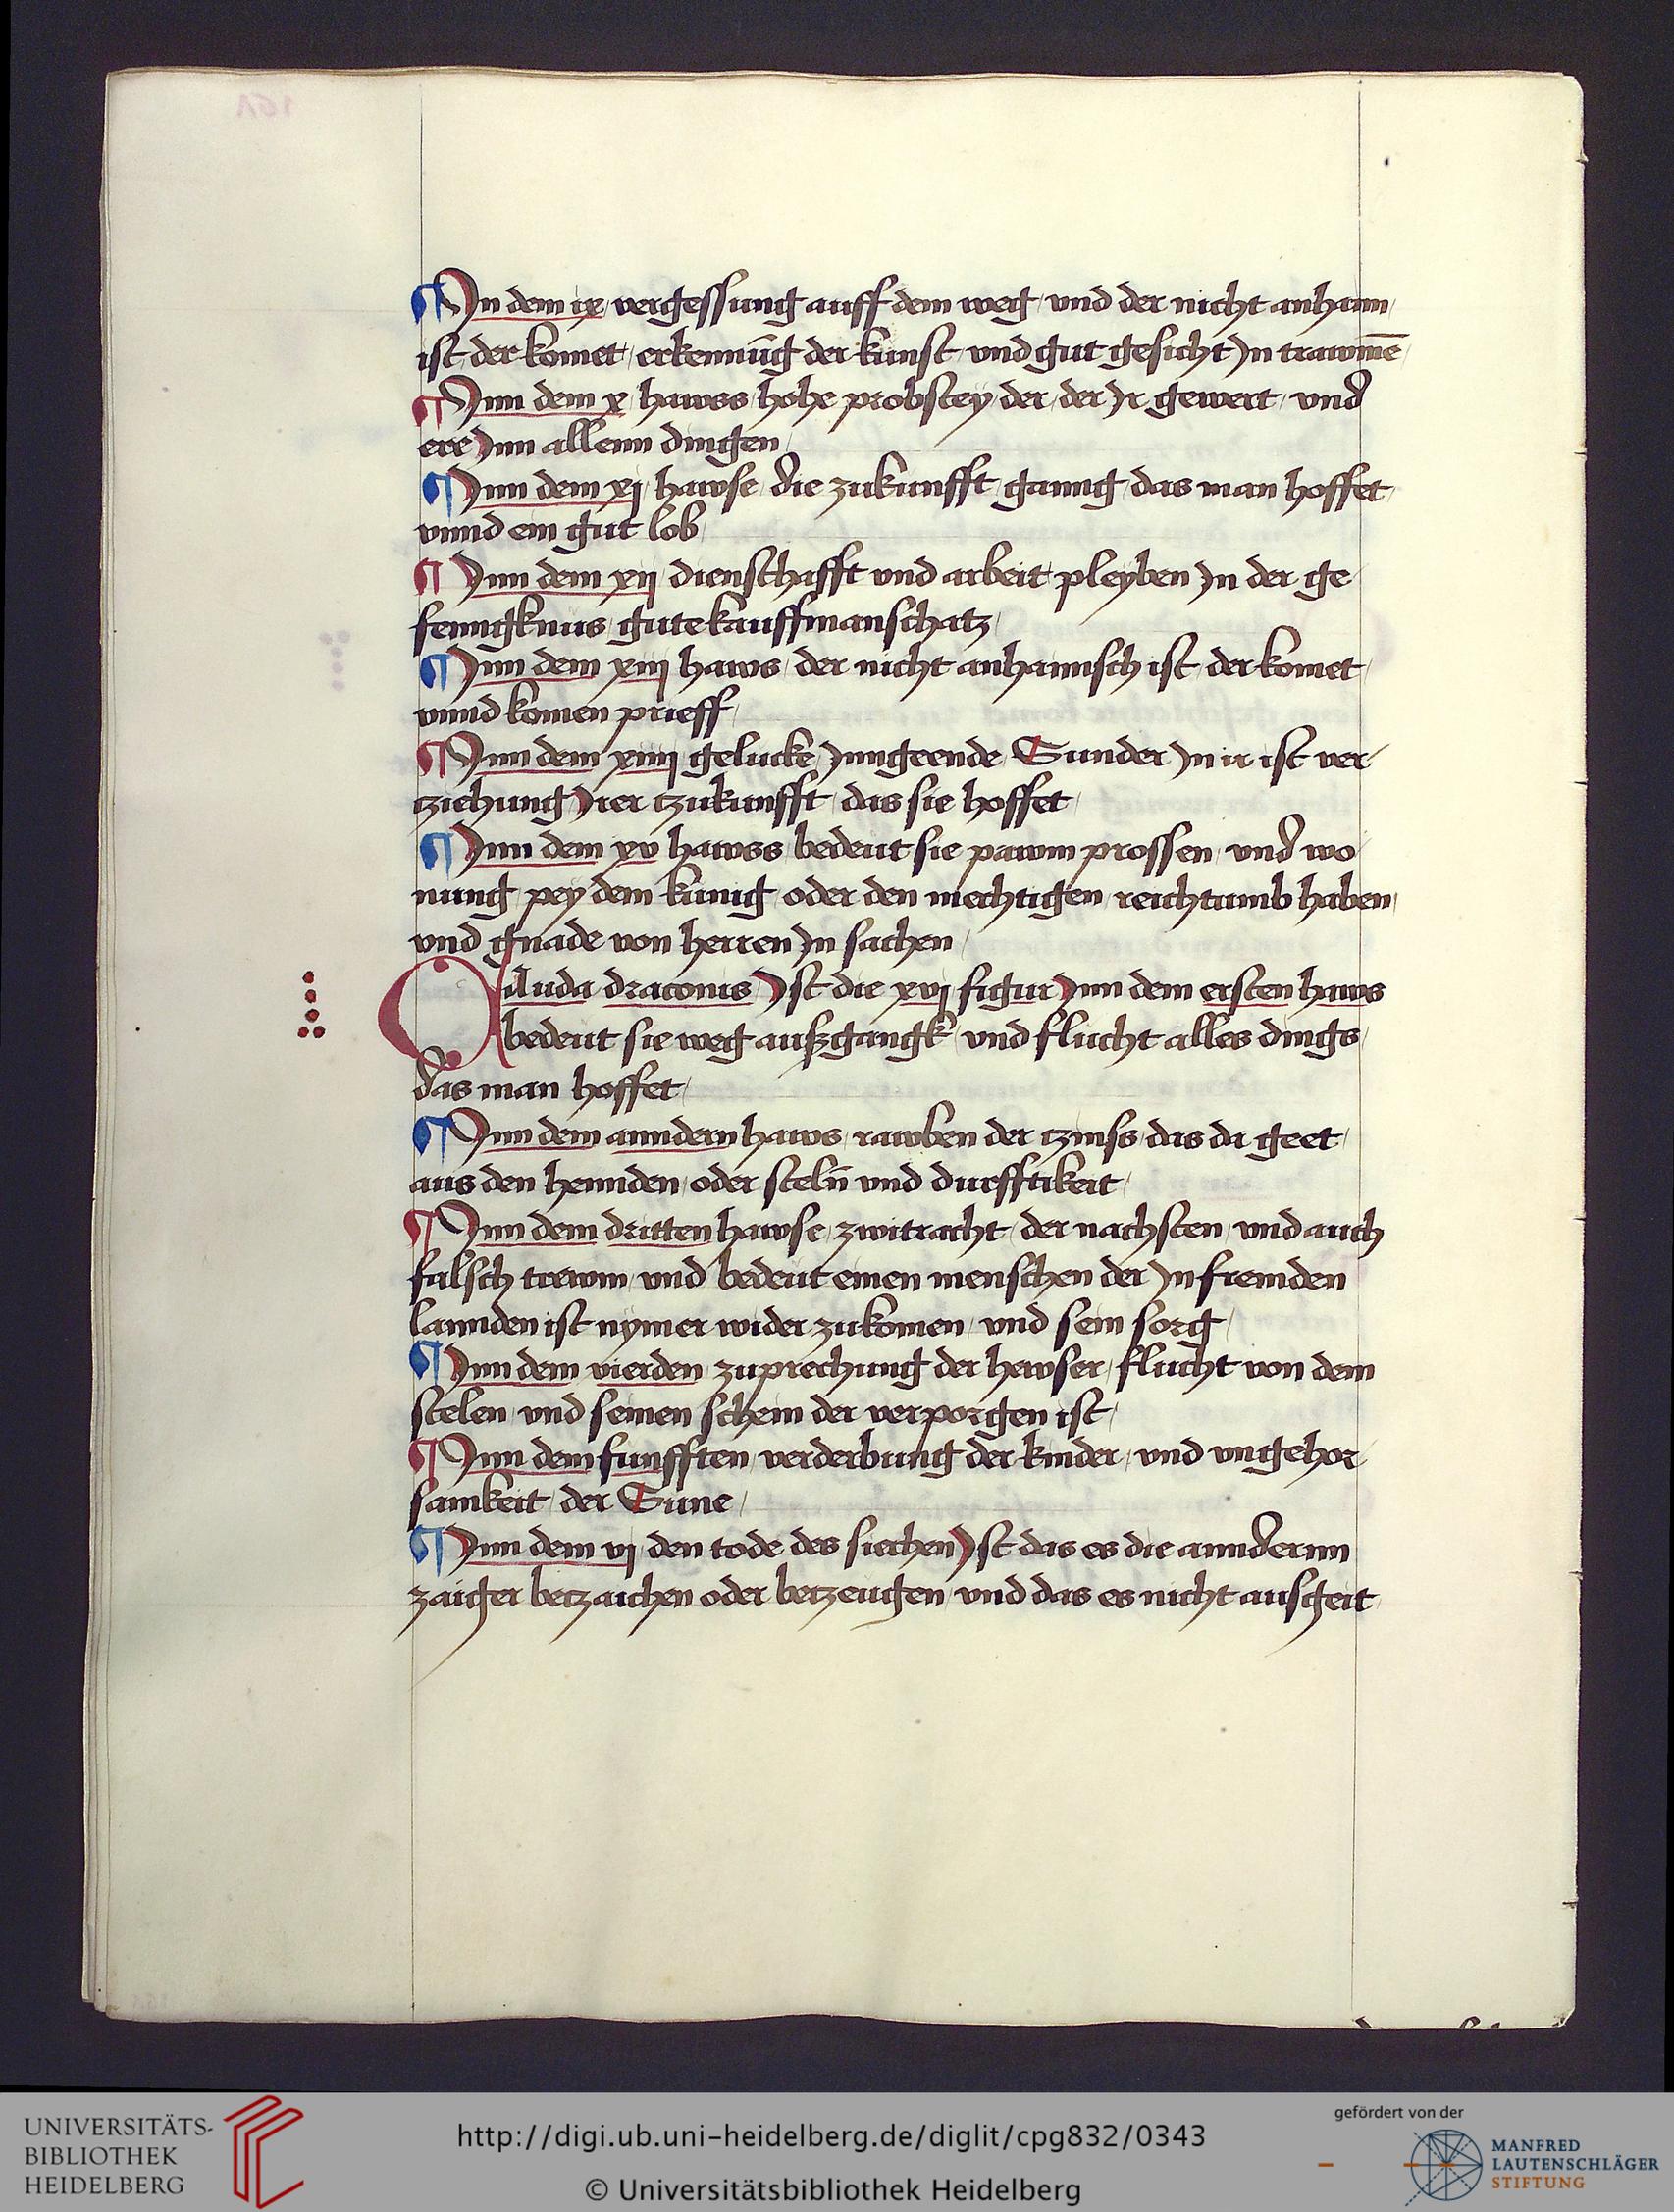 ¶ In dem ix vergessung auff dem weg / vnd der nicht anhaim /
ist der komet / erkennūg der kunst / vnd gut gesicht In trawmē /
¶ Inn dem x hawss / hohe probstey / der / der Ir gewert / vnd
ere Inn allenn dingen /
¶ Inn dem xj hawse / die zukunfft / ganng / das man hoffet /
vnnd ein gut lob /
¶ Inn dem xij / dienschafft vnd arbeit / pleyben In der ge /
fenngknus / gute kauffmanschatz /
¶ Inn dem xiij haws / der nicht anhaimsch ist / der komet /
vnnd komen prieff /
¶ Inn dem xiiij gelucke / Inngeende / Sunder In ir ist ver /
tziehung Irer tzukunfft / das sie hoffet /
¶ Inn dem xv hawss / bedeut sie pawm prossen / vnd wo /
nung / pey dem kunig / oder den mechtigen / reichtumb haben /
vnd gnade von herren In sachen /
Cauda draconis / Ist die xvj figur Inn dem ersten haws
bedeut sie weg außgangk / vnd flucht alles dings /
das man hoffet /
¶ Inn dem anndern haws / rawben der tzinss / das da geet /
aus den hennden / oder stelñ vnd durfftikeit /
¶ Inn dem dritten hawse / zwitracht / der nachsten / vnd auch
falsch trewm / vnd bedeut einen menschen der In fremden
lannden ist nymer wider zukomen / vnd sein sorg /
¶ Inn dem vierden zuprechung der hewser / flucht von dem
stelen / vnd seinen schein der verporgen ist /
¶ Inn dem funfften / verderbung der kinder / vnd vngehor /
samkeit / der Sune /
¶ Inn dem vj / den tode des siechen Ist das es die anndernn
zaiger betzaichen oder betzeugen / vnd das es nicht ausgeit /
UNIVERSITÄTS-
BIBLIOTHEK
HEIDELBERG
http://digi.ub.uni-heidelberg.de/diglit/cpg832/0343
© Universitätsbibliothek Heidelberg
gefördert von der
MANFRED
LAUTENSCHLÄGER
STIFTUNG